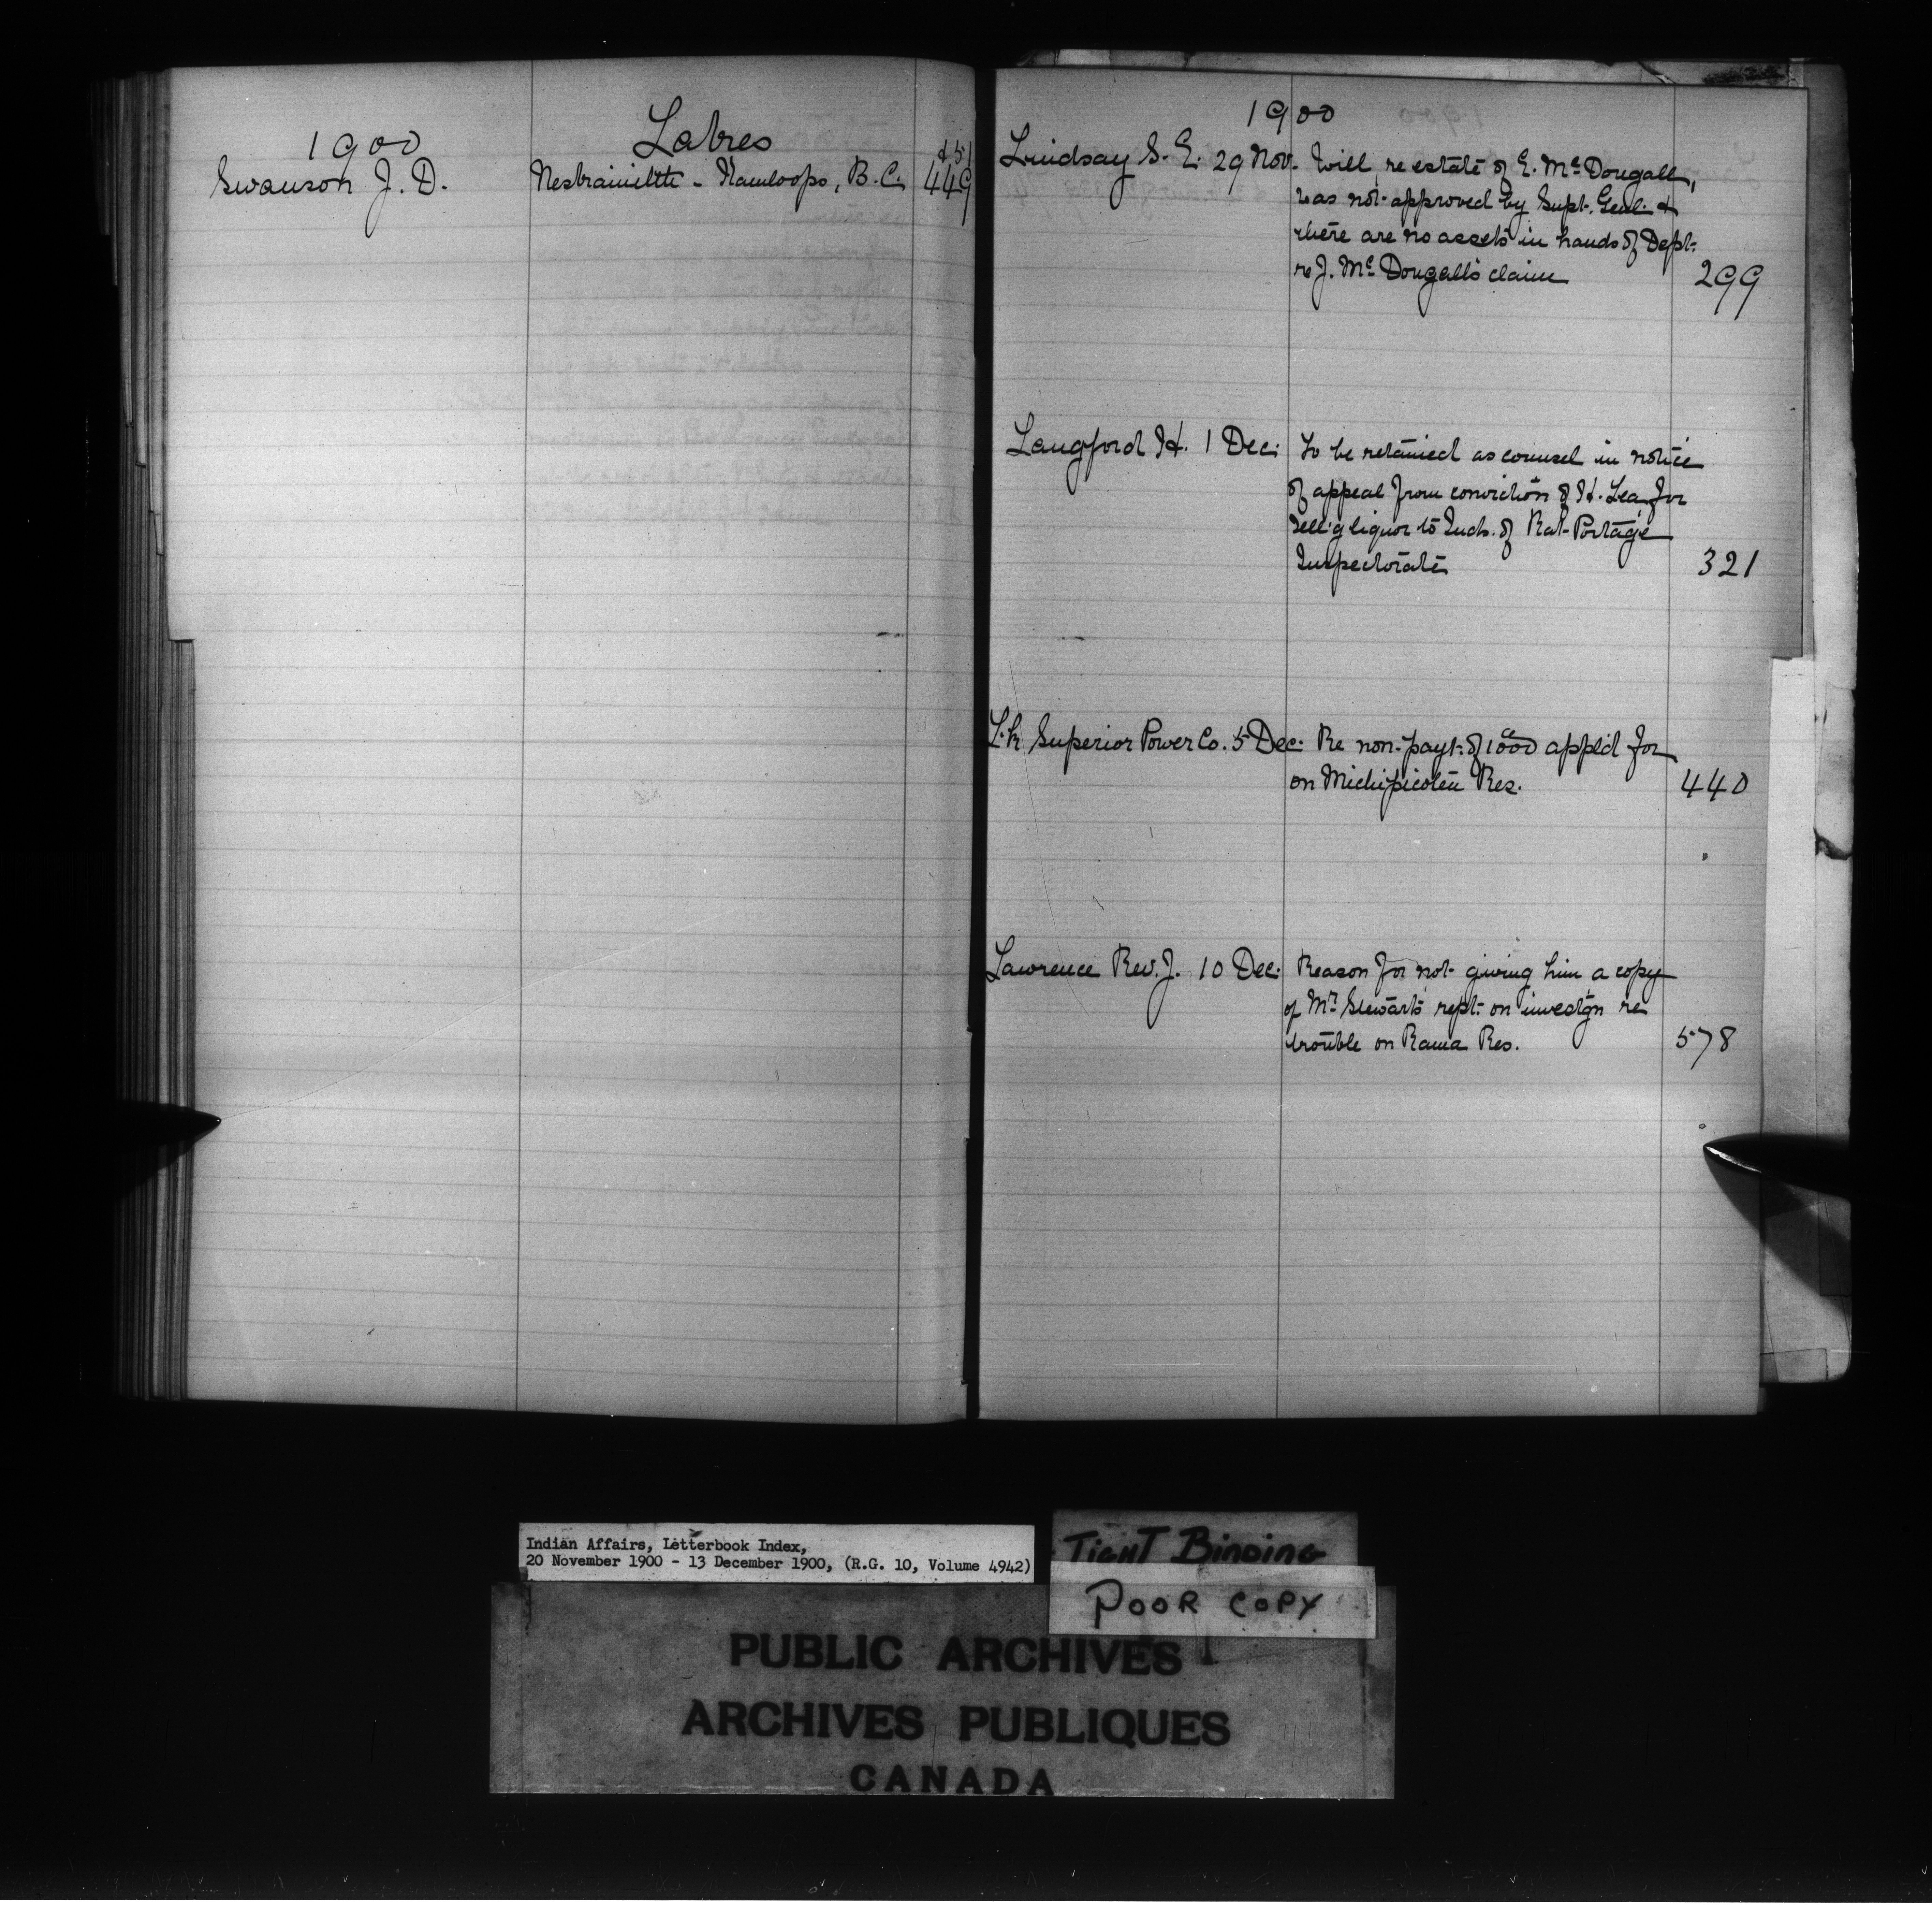 1900
Labres
Swanson J. D.
Kamloops, B.C.
451
449
1900
Lindsay S. E. 29 Nov. Will, re estate of E. McDougall,
was not approved by Supt. Genl. &
there are no assets in hands of Dept.
re J. McDougall's claim 299
Langford H. 1 Dec. To be retained as counsel in notice
of appeal from conviction of H. Lea for
sell'g liquor to Inds. of Rat Portage
Inspectorate 321
L.k Superior Power Co. 5 Dec. Re non-payt. of 1000 ac appl'd for
on Michipicoten Res. 440
Lawrence Rev. J. 10 Dec. Reason for not giving him a copy
of Mr Stewart's rept. on investgn re
trouble on Rama Res. 578
Indian Affairs, Letterbook Index,
20 November 1900 - 13 December 1900, (R.G. 10, Volume 4942)
TIGHT BINDING
POOR COPY
PUBLIC ARCHIVES
ARCHIVES PUBLIQUES
CANADA